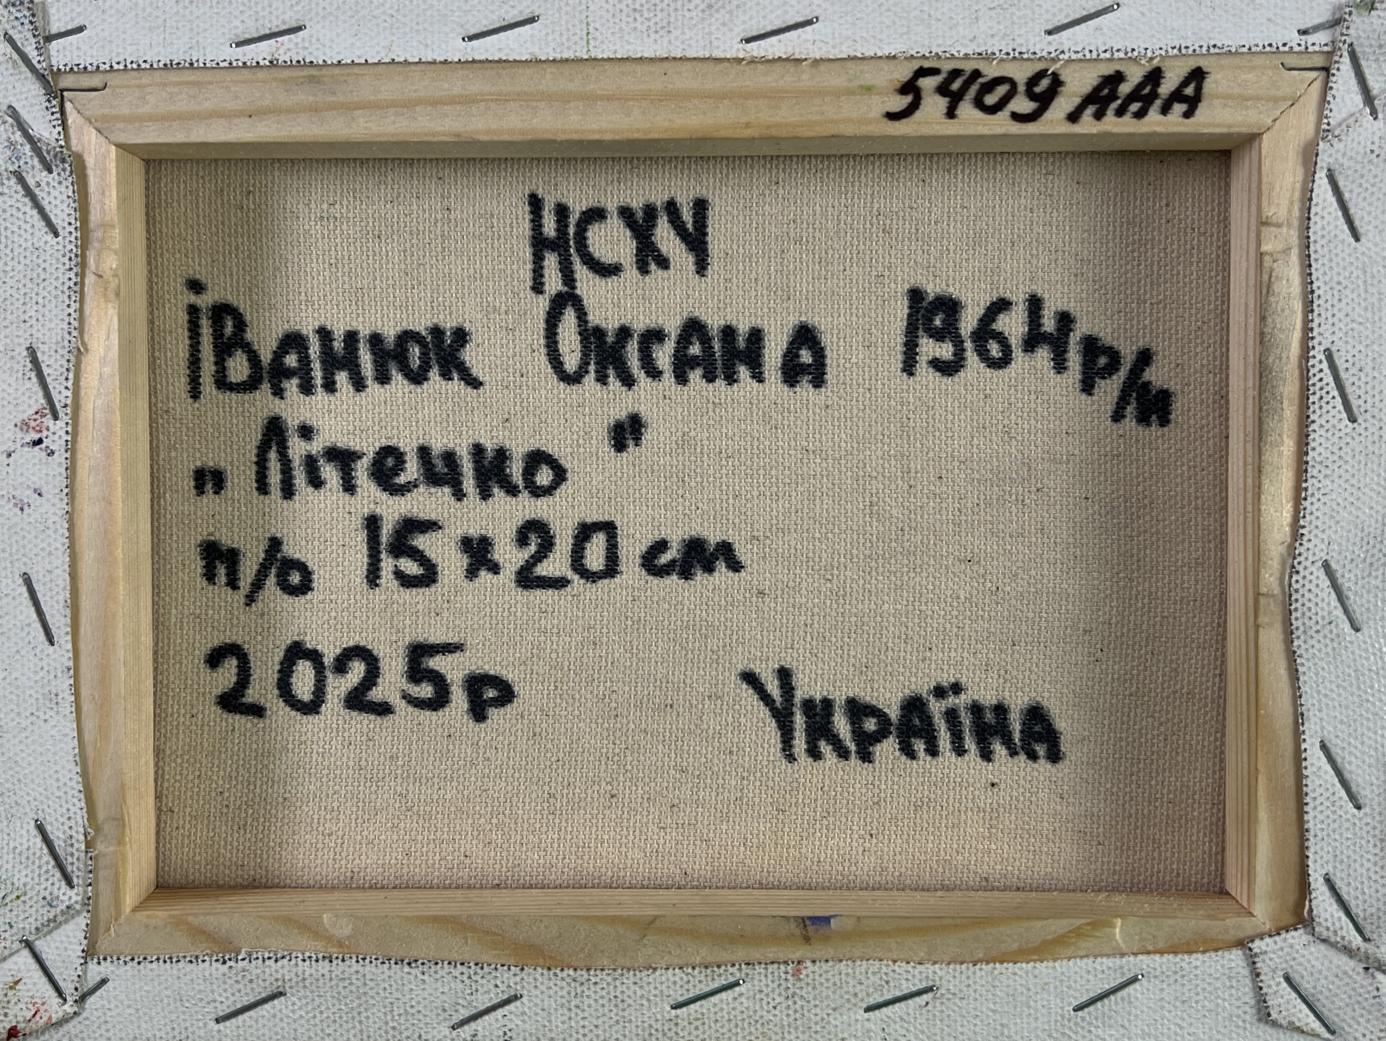 5409 AAA
НСХУ
Іванюк Оксана 1964 р/н
„Літечко"
п/о 15x20 см
2025р
Україна